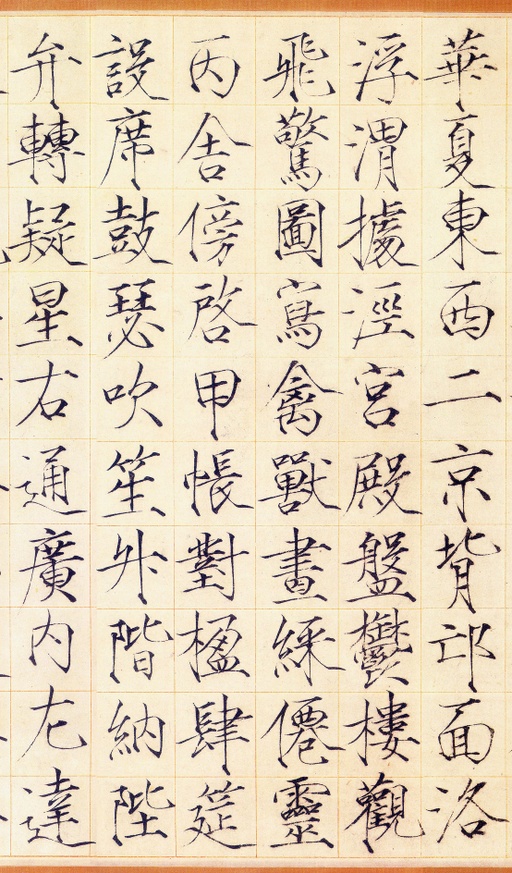 華夏東西二京背邙面洛
浮渭據涇宮殿盤鬱樓觀
飛驚圖寫禽獸畫綵僊靈
丙舍傍啓甲帳對楹肆筵
設席鼓瑟吹笙升階納陛
弁轉疑星右通廣內左達